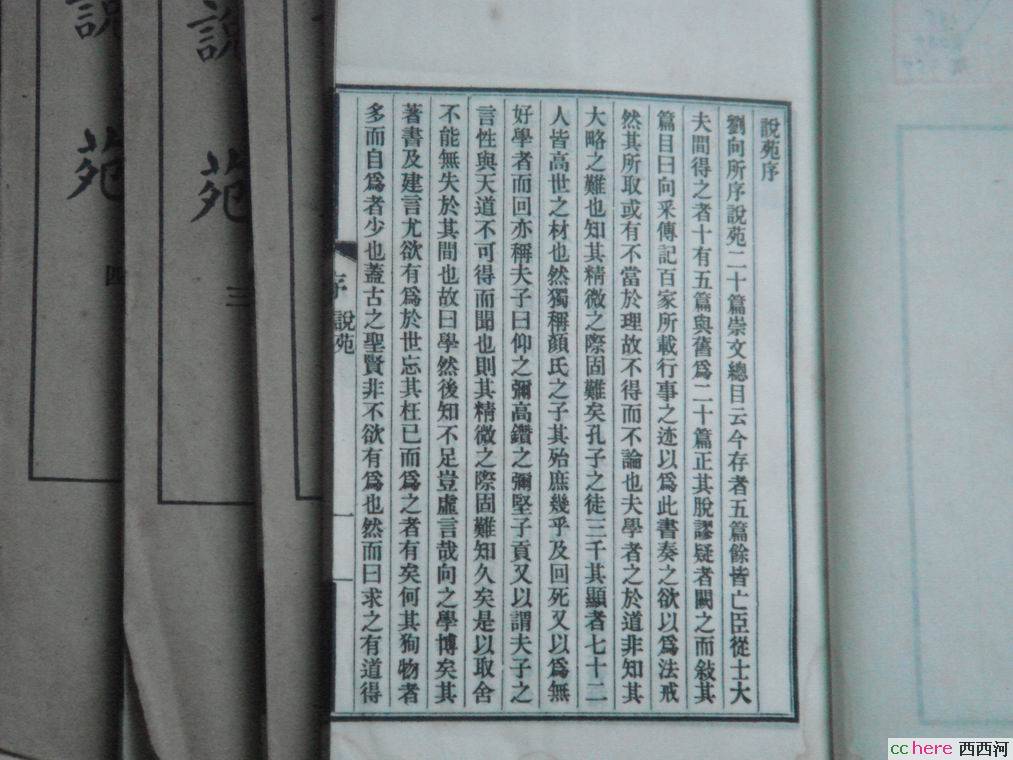 說苑序
劉向所序說苑二十篇崇文總目云今存者五篇餘皆亡臣從士大
夫間得之者十有五篇與舊爲二十篇正其脫謬疑者闕之而敍其
篇目曰向采傳記百家所載行事之迹以爲此書奏之欲以爲法戒
然其所取或有不當於理故不得而不論也夫學者之於道非知其
大略之難也知其精微之際固難矣孔子之徒三千其顯者七十二
人皆高世之材也然獨稱顏氏之子其殆庶幾乎及回死又以爲無
好學者而回亦稱夫子曰仰之彌高鑽之彌堅子貢又以謂夫子之
言性與天道不可得而聞也則其精微之際固難知久矣是以取舍
不能無失於其間也故曰學然後知不足豈虛言哉向之學博矣其
著書及建言尤欲有爲於世忘其枉已而爲之者有矣何其狥物者
多而自爲者少也蓋古之聖賢非不欲有爲也然而曰求之有道得
序
說苑
一
說苑
三
說苑
四
cchere 西西河